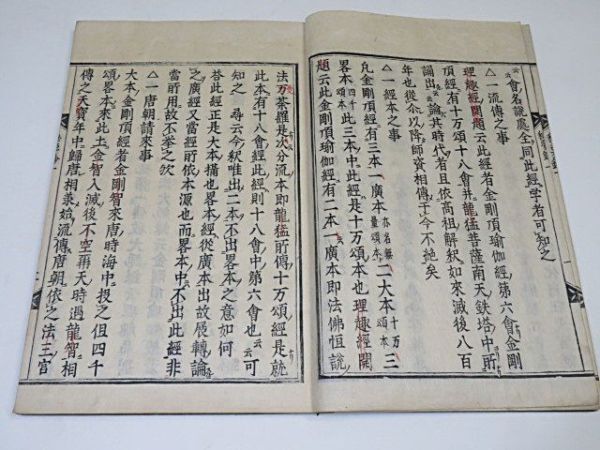 云會名説處全同此經学者可知之
△一流傳之事
理趣經開題云此經者金剛頂瑜伽經第六會金剛
頂經有十万頌十八會并龍猛菩薩南天鉄塔中所
誦出云云論其時代者且依高祖解釈如來滅後八百
年也從尒以降師資相傳于今不絶矣
△一經本之事
凢金剛頂經有三本一廣本亦名無量頌本二大本十万三
畧本四千頌本此三本中此經是十万頌本也理趣經開
題云此金剛頂瑜伽經有二本一廣本即法佛恒説
法万荼羅是次分流本即龍猛所傳十万頌經是就
此本有十八會經此經則十八會中第六會也云云可
知之 尋云今釈唯出二本不出畧本之意如何
荅此經正是大本攝也畧本經從廣本出故展轉論
之廣經又當經所依本源也而畧本中不出此經非
當所用故不挙之欤
△一唐朝請來事
大本金剛頂經者金剛智來唐時海中投之但四千
頌畧本來此土金智入滅後不空再天時過龍智相
傳之天寳年中歸唐相乗始流傳唐朝依之法三宮